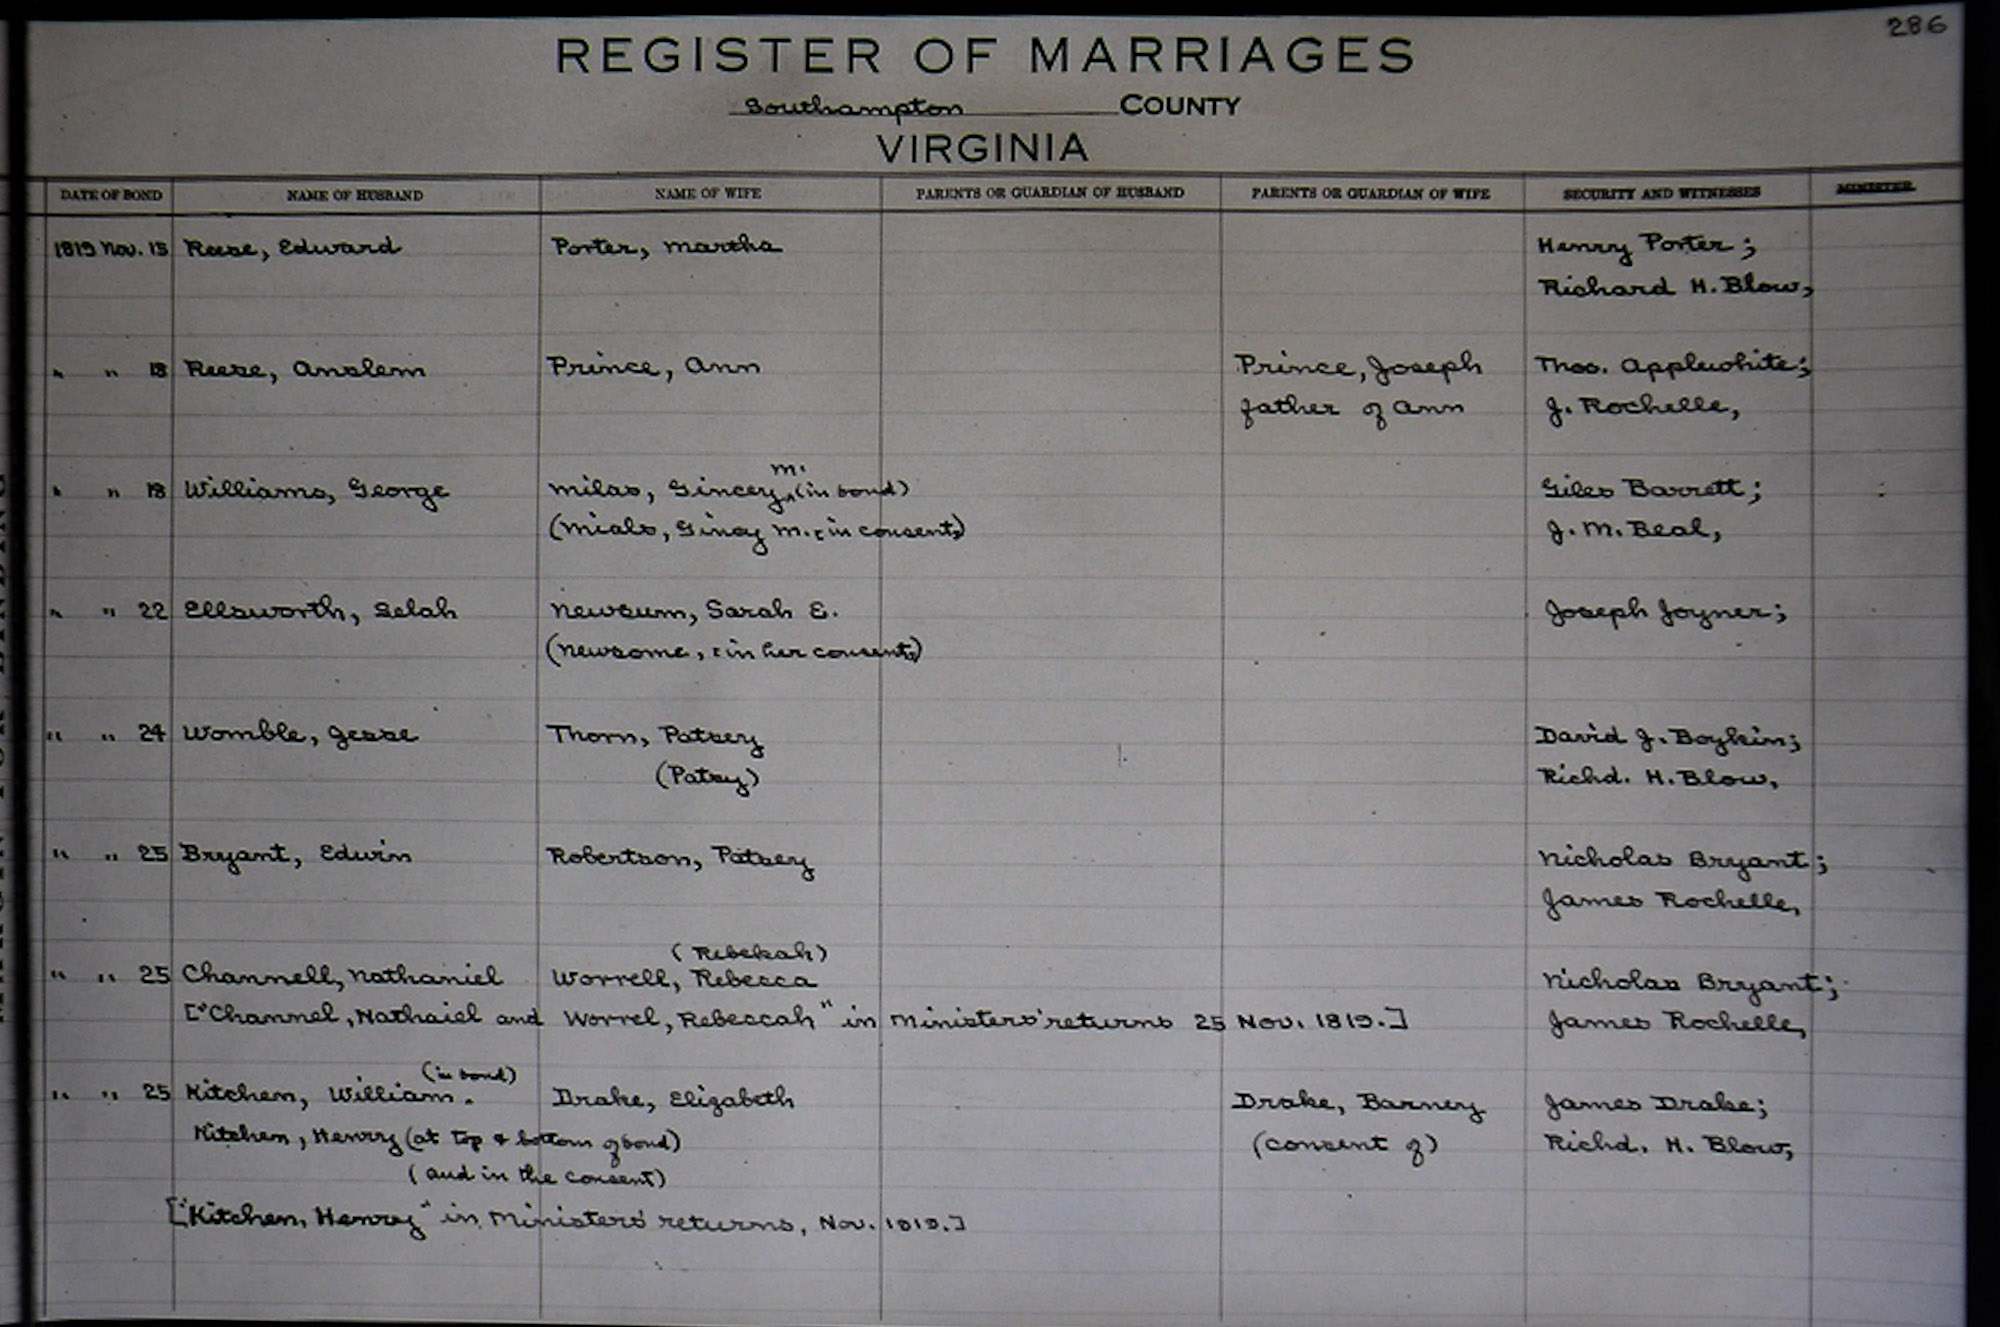 286
REGISTER OF MARRIAGES
Southampton COUNTY
VIRGINIA
DATE OF BOND NAME OF HUSBAND NAME OF WIFE PARENTS OR GUARDIAN OF HUSBAND PARENTS OR GUARDIAN OF WIFE SECURITY AND WITNESSES MINISTER
1819 Nov. 15 Reese, Edward Porter, Martha Henry Porter;
Richard H. Blow,
" " 18 Reese, Anslem Prince, Ann Prince, Joseph Thos. Applewhite;
father of Ann J. Rochelle,
M.
" " 18 Williams, George Milas, Gincey ^ (in bond) Giles Barrett;
(Mials, Gincy M. [in consent]) J. M. Beal,
" " 22 Ellsworth, Selah Newsum, Sarah E. Joseph Joyner;
(Newsome, [in her consent])
" " 24 Womble, Jesse Thorn, Patsey David J. Boykin;
(Patsy) Richd. H. Blow,
" " 25 Bryant, Edwin Robertson, Patsey Nicholas Bryant;
James Rochelle,
(Rebekah)
" " 25 Channell, Nathaniel Worrell, Rebecca Nicholas Bryant;
["Channel, Nathaiel and Worrel, Rebeccah" in Ministers' returns 25 Nov. 1819.] James Rochelle,
(in bond)
" " 25 Kitchen, William. Drake, Elizabeth Drake, Barney James Drake;
Kitchen, Henry (at top & bottom of bond) (consent of) Richd. H. Blow,
(and in the consent)
["Kitchen, Henry" in Ministers' returns, Nov. 1819.]